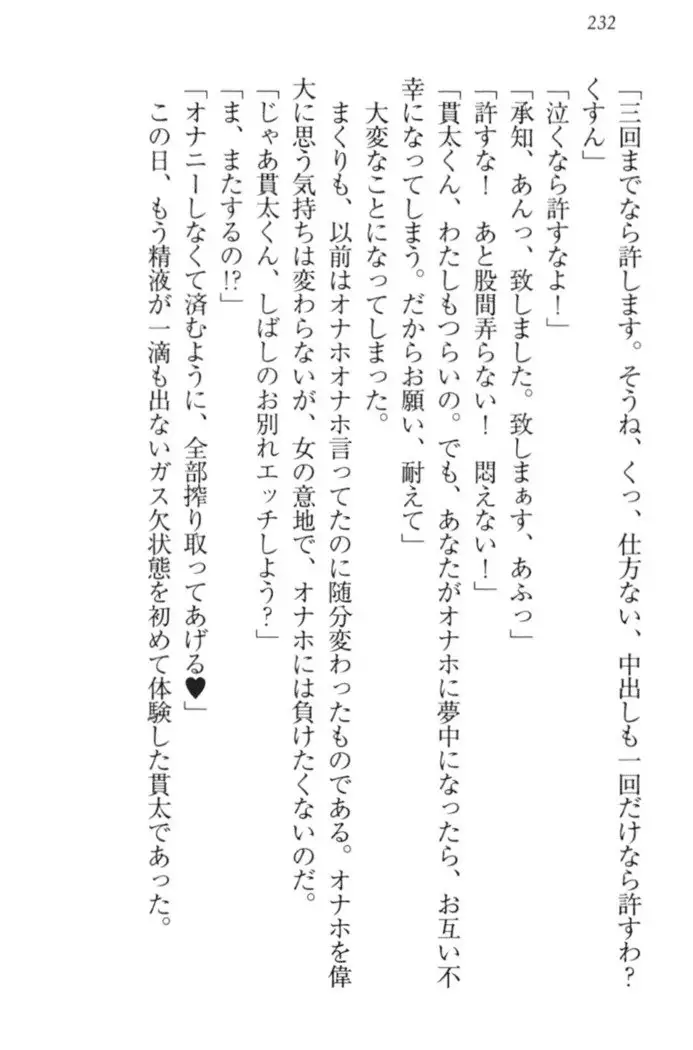 232
「三回までなら許します。そうね、くっ、仕方ない、中出しも一回だけなら許すわ？
くすん」
「泣くなら許すなよ！」
「承知、あんっ、致しました。致しまぁす、あふっ」
「許すな！　あと股間弄らない！　悶えない！」
「貫太くん、わたしもつらいの。でも、あなたがオナホに夢中になったら、お互い不
幸になってしまう。だからお願い、耐えて」
大変なことになってしまった。
まくりも、以前はオナホオナホ言ってたのに随分変わったものである。オナホを偉
大に思う気持ちは変わらないが、女の意地で、オナホには負けたくないのだ。
「じゃあ貫太くん、しばしのお別れエッチしよう？」
「ま、またするの!?」
「オナニーしなくて済むように、全部搾り取ってあげる♥」
この日、もう精液が一滴も出ないガス欠状態を初めて体験した貫太であった。